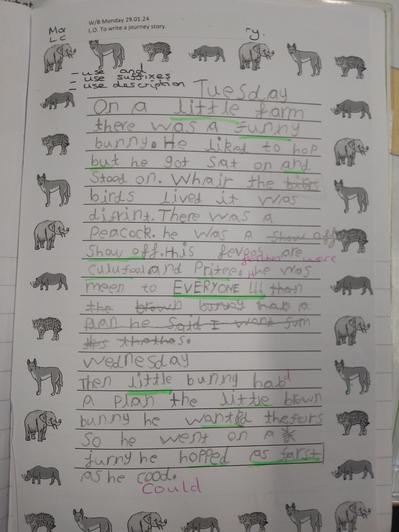 W/B Monday 29.01.24
L.O. To write a journey story.
- use and
- use suffixes
- use description
Tuesday
On a little farm
there was a funny
bunny. He liked to hop
but he got sat on and
stood on. Whair the birs
birds lived it was
difrint. There was a
Peacock. he was a show off
show off. His fevers are
feathers were
culufool and Pritee. He was
meen to EVERYONE !!! than
the brown bunny hab a
plan he said I want sum
Wednesday
Then little bunny habd
a plan the little brown
bunny he wanted
So he went on a
he hopped as farst
as he cood.
Could